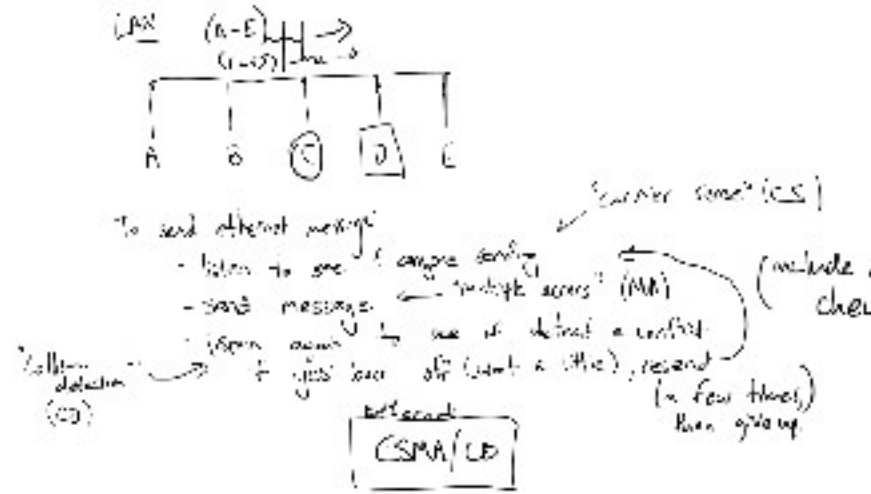 LAN (A-E)
A B C D E
"carrier sense" (CS)
To send ethernet message
- listen to see if anyone sending
- send message "multiple access" (MA)
(include
- listen again to see if detect a conflict
if yes, back off (wait a little), resend
"collision detection"
(CD)
(a few times,)
then give up
Ethernet
CSMA/CD